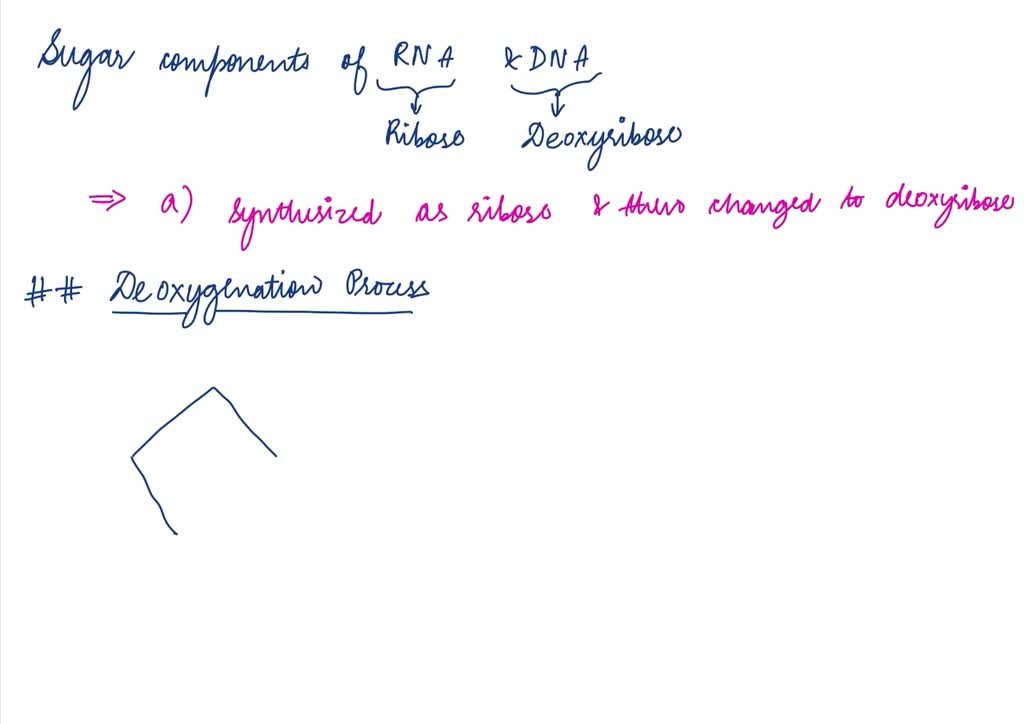 Sugar components of RNA & DNA
Ribose Deoxyribose
⇒ a) synthesized as ribose & then changed to deoxyribose
## Deoxygenation Process